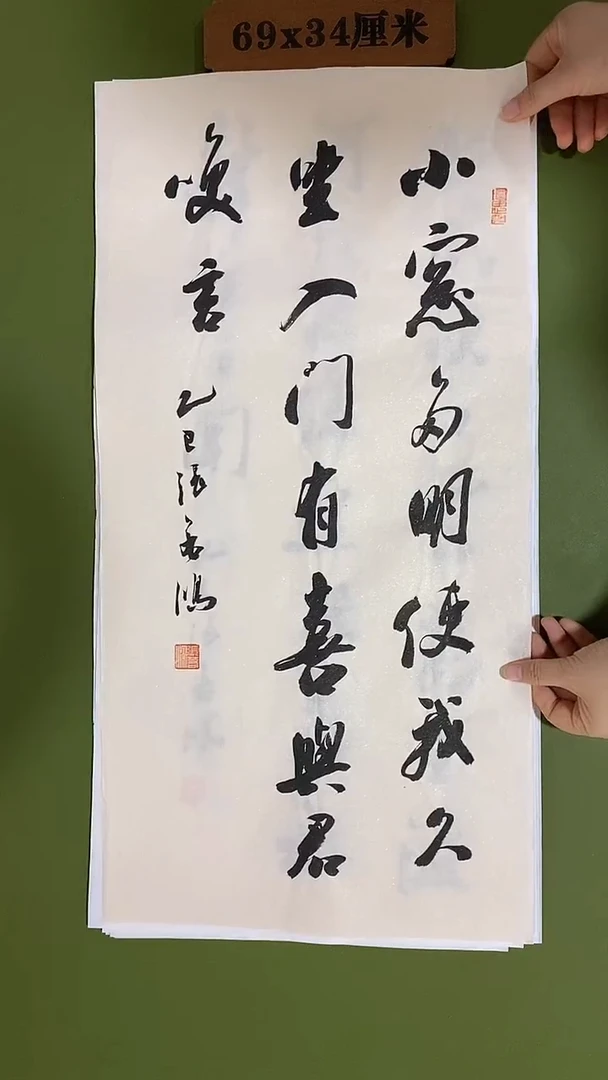 69x34厘米
小窓多明使我久
坐入门有喜與君
笑言
乙巳張若鴻